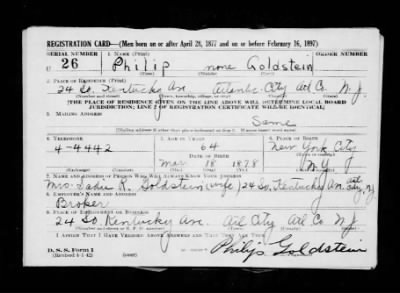 REGISTRATION CARD—(Men born on or after April 28, 1877 and on or before February 16, 1897)
SERIAL NUMBER 1. NAME (Print) ORDER NUMBER
U 26 Philip none Goldstein
(First) (Middle) (Last)
2. PLACE OF RESIDENCE (Print)
24 So. Kentucky Av. Atlantic City Atl Co. N. J.
(Number and street) (Town, township, village, or city) (County) (State)
[THE PLACE OF RESIDENCE GIVEN ON THE LINE ABOVE WILL DETERMINE LOCAL BOARD
JURISDICTION; LINE 2 OF REGISTRATION CERTIFICATE WILL BE IDENTICAL]
3. MAILING ADDRESS
Same
[Mailing address if other than place indicated on line 2. If same insert word same]
4. TELEPHONE 5. AGE IN YEARS 6. PLACE OF BIRTH
4-4442 64 New York City
DATE OF BIRTH (Town or county)
Mar 18 1878 N.Y.
(Exchange) (Number) (Mo.) (Day) (Yr.) (State or country)
7. NAME AND ADDRESS OF PERSON WHO WILL ALWAYS KNOW YOUR ADDRESS
Mrs. R. Goldstein (wife) 24 So. Kentucky Av. Atl City, N.J.
8. EMPLOYER'S NAME AND ADDRESS
Broker
9. PLACE OF EMPLOYMENT OR BUSINESS
24 So. Kentucky Ave. Atl City Atl Co. N. J.
(Number and street or R. F. D. number) (Town) (County) (State)
I AFFIRM THAT I HAVE VERIFIED ABOVE ANSWERS AND THAT THEY ARE TRUE.
D. S. S. Form 1
(Revised 4-1-42) Philip Goldstein